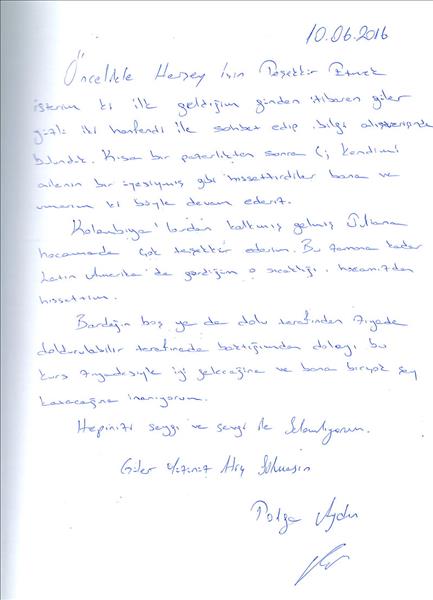 10.06.2016
Öncelikle Herşey İçin Teşekkür Etmek
isterim ki ilk geldiğim günden itibaren güler
yüzlü iki hanfendi ile sohbet edip bilgi alışverişinde
bulunduk. Kısa bir pazarlıktan sonra (; kendimi
ailenin bir üyesiymiş gibi hissettirdiler bana ve
umarım ki böyle devam ederiz.
Kolombiya'lardan kalkmış gelmiş Juliana
hocamada çok teşekkür ederim. Bu zamana kadar
Latin Amerika'da gördüğüm o sıcaklığı hocamızdan
hissettim.
Bardağın boş ya da dolu tarafından ziyade
doldurulabilir tarafınada baktığımdan dolayı bu
kurs ziyadesiyle iyi geleceğine ve bana birçok şey
katacağına inanıyorum.
Hepinizi saygı ve sevgi ile Selamlıyorum.
Güler Yüzünüz Hiç Solmasın
Aydın